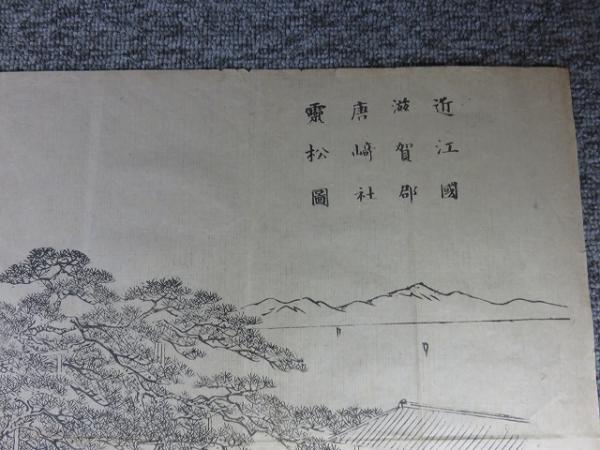 近江國
滋賀郡
唐﨑社
靈松圖